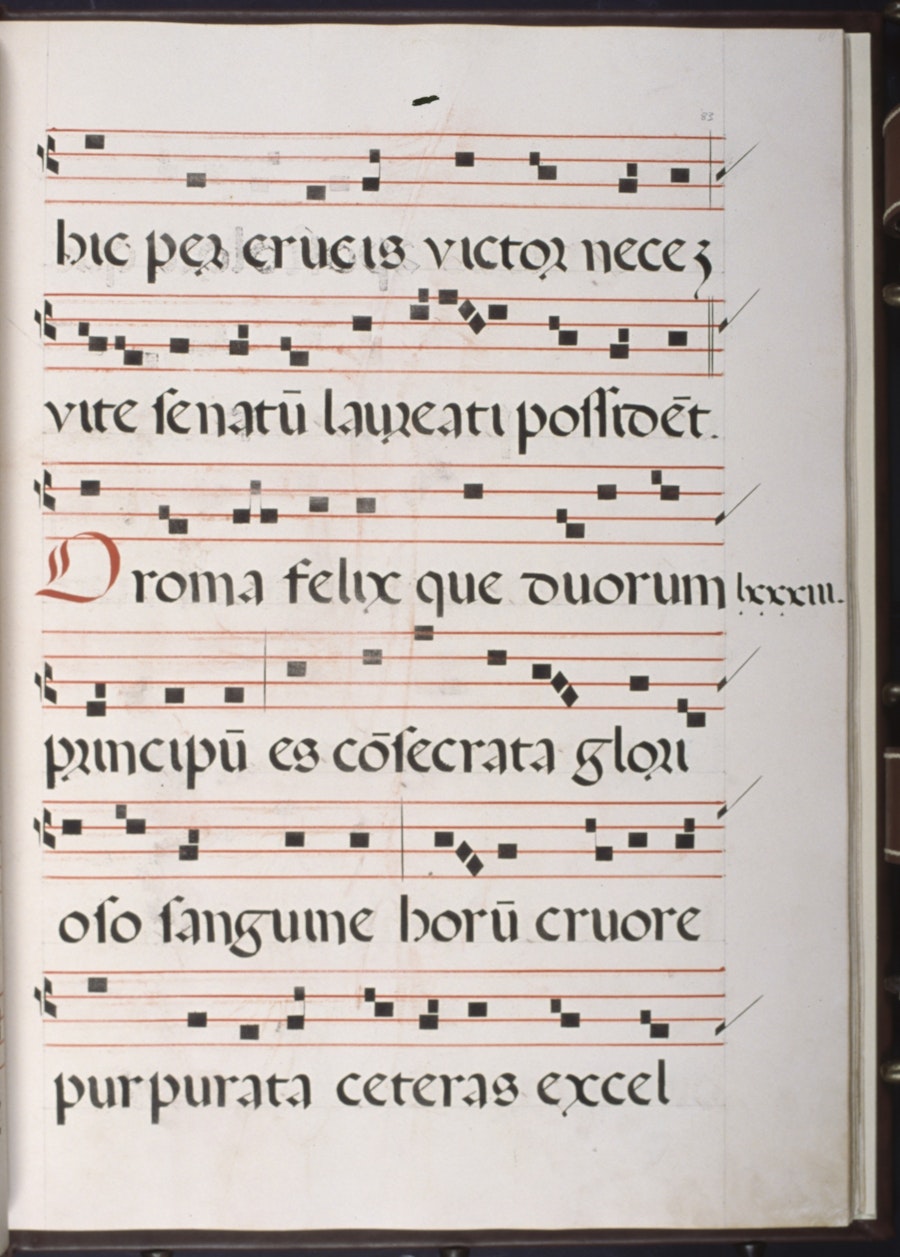 83
hic per crucis victor necez
vite ſenatū laureati poſſidēt.
O roma felix que duorum lxxxiii.
principū es cōſecrata glori
oſo ſanguine horū cruore
purpurata ceteras excel